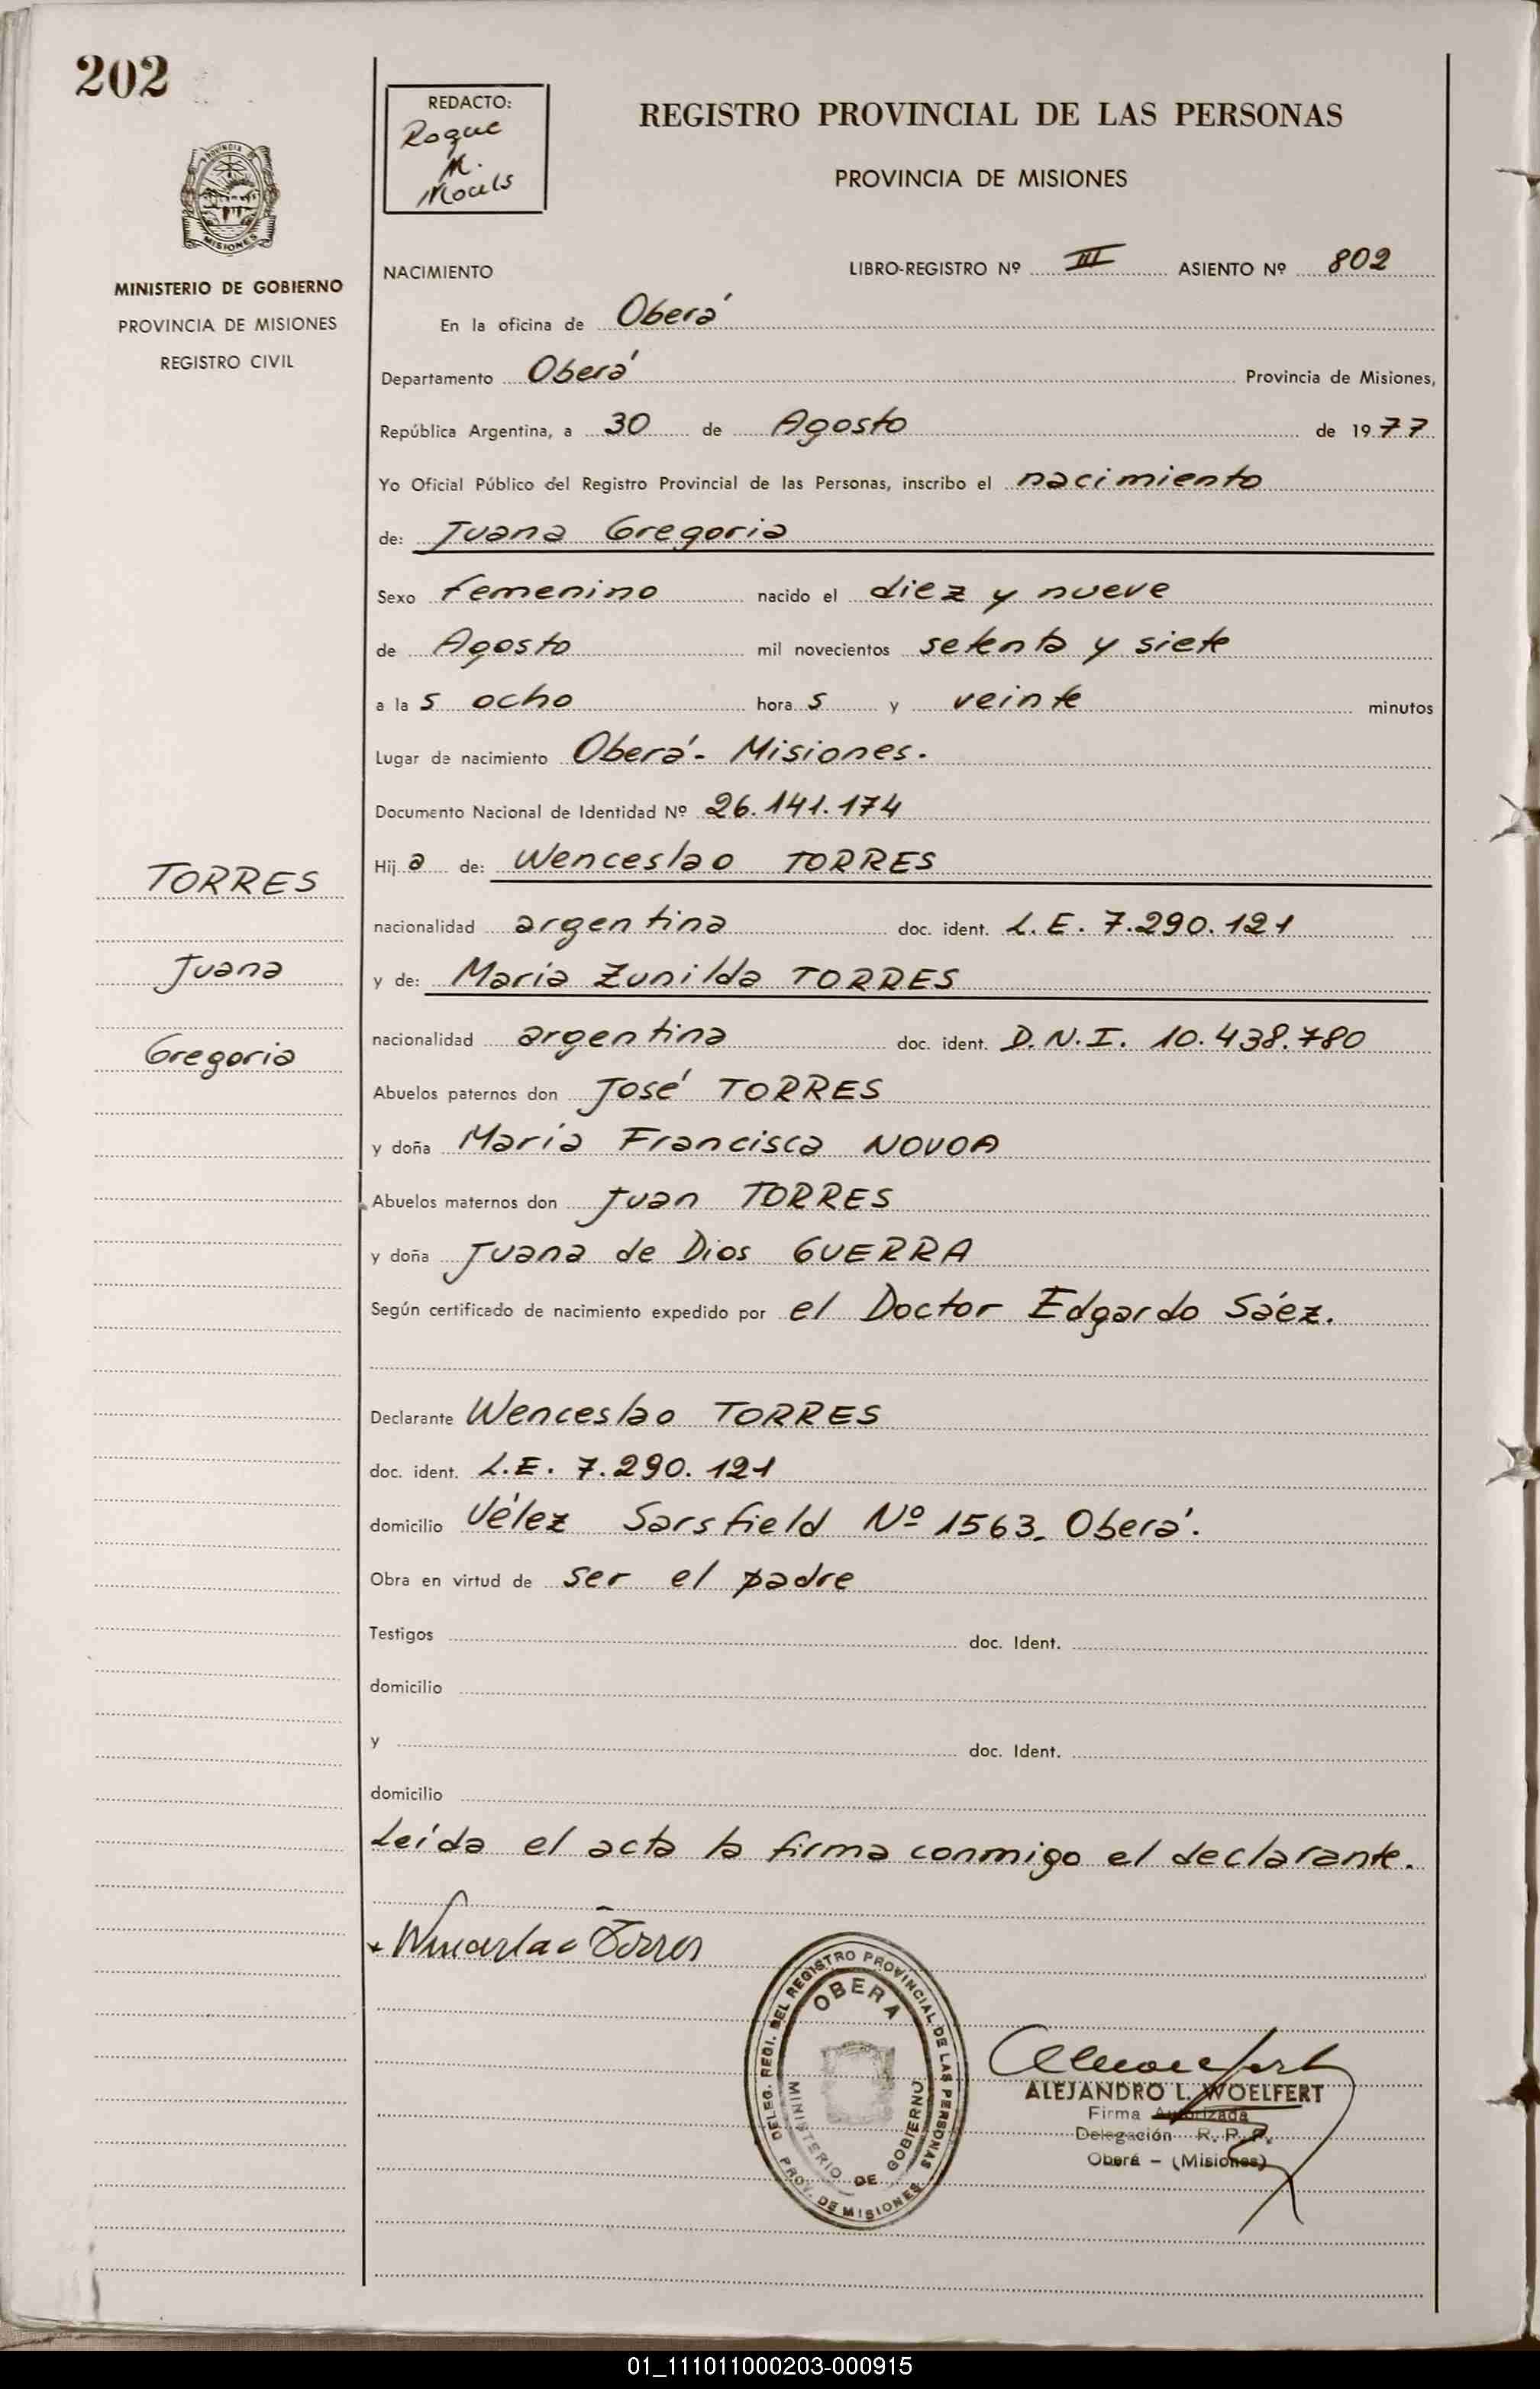 202
REDACTO:
Roque
M.
REGISTRO PROVINCIAL DE LAS PERSONAS
PROVINCIA DE MISIONES
PROVINCIA
MISIONES
MINISTERIO DE GOBIERNO
PROVINCIA DE MISIONES
REGISTRO CIVIL
NACIMIENTO LIBRO-REGISTRO Nº III ASIENTO Nº 802
En la oficina de Oberá
Departamento Oberá Provincia de Misiones,
República Argentina, a 30 de Agosto de 1977
Yo Oficial Público del Registro Provincial de las Personas, inscribo el nacimiento
de: Juana Gregoria
Sexo femenino nacido el diez y nueve
de Agosto mil novecientos setenta y siete
a la s ocho hora s y veinte minutos
Lugar de nacimiento Oberá - Misiones.
Documento Nacional de Identidad Nº 26.141.174
Hij a de: Wenceslao TORRES
nacionalidad argentina doc. ident. L.E. 7.290.121
y de: María Zunilda TORRES
nacionalidad argentina doc. ident. D.N.I. 10.438.780
Abuelos paternos don José TORRES
y doña María Francisca NOVOA
Abuelos maternos don Juan TORRES
y doña Juana de Dios GUERRA
Según certificado de nacimiento expedido por el Doctor Edgardo Sáez.
Declarante Wenceslao TORRES
doc. ident. L.E. 7.290.121
domicilio Vélez Sarsfield Nº 1563_ Oberá.
Obra en virtud de ser el padre
Testigos doc. Ident.
domicilio
y doc. Ident.
domicilio
Leída el acta la firma conmigo el declarante.
TORRES
Juana
Gregoria
Wenceslao Torres
DELEG. REGI. DEL REGISTRO PROVINCIAL DE LAS PERSONAS
OBERA
MINISTERIO DE GOBIERNO
PROV. DE MISIONES
ALEJANDRO L. WOELFERT
Firma Autorizada
Delegación R. P. P.
Oberá - (Misiones)
01_111011000203-000915